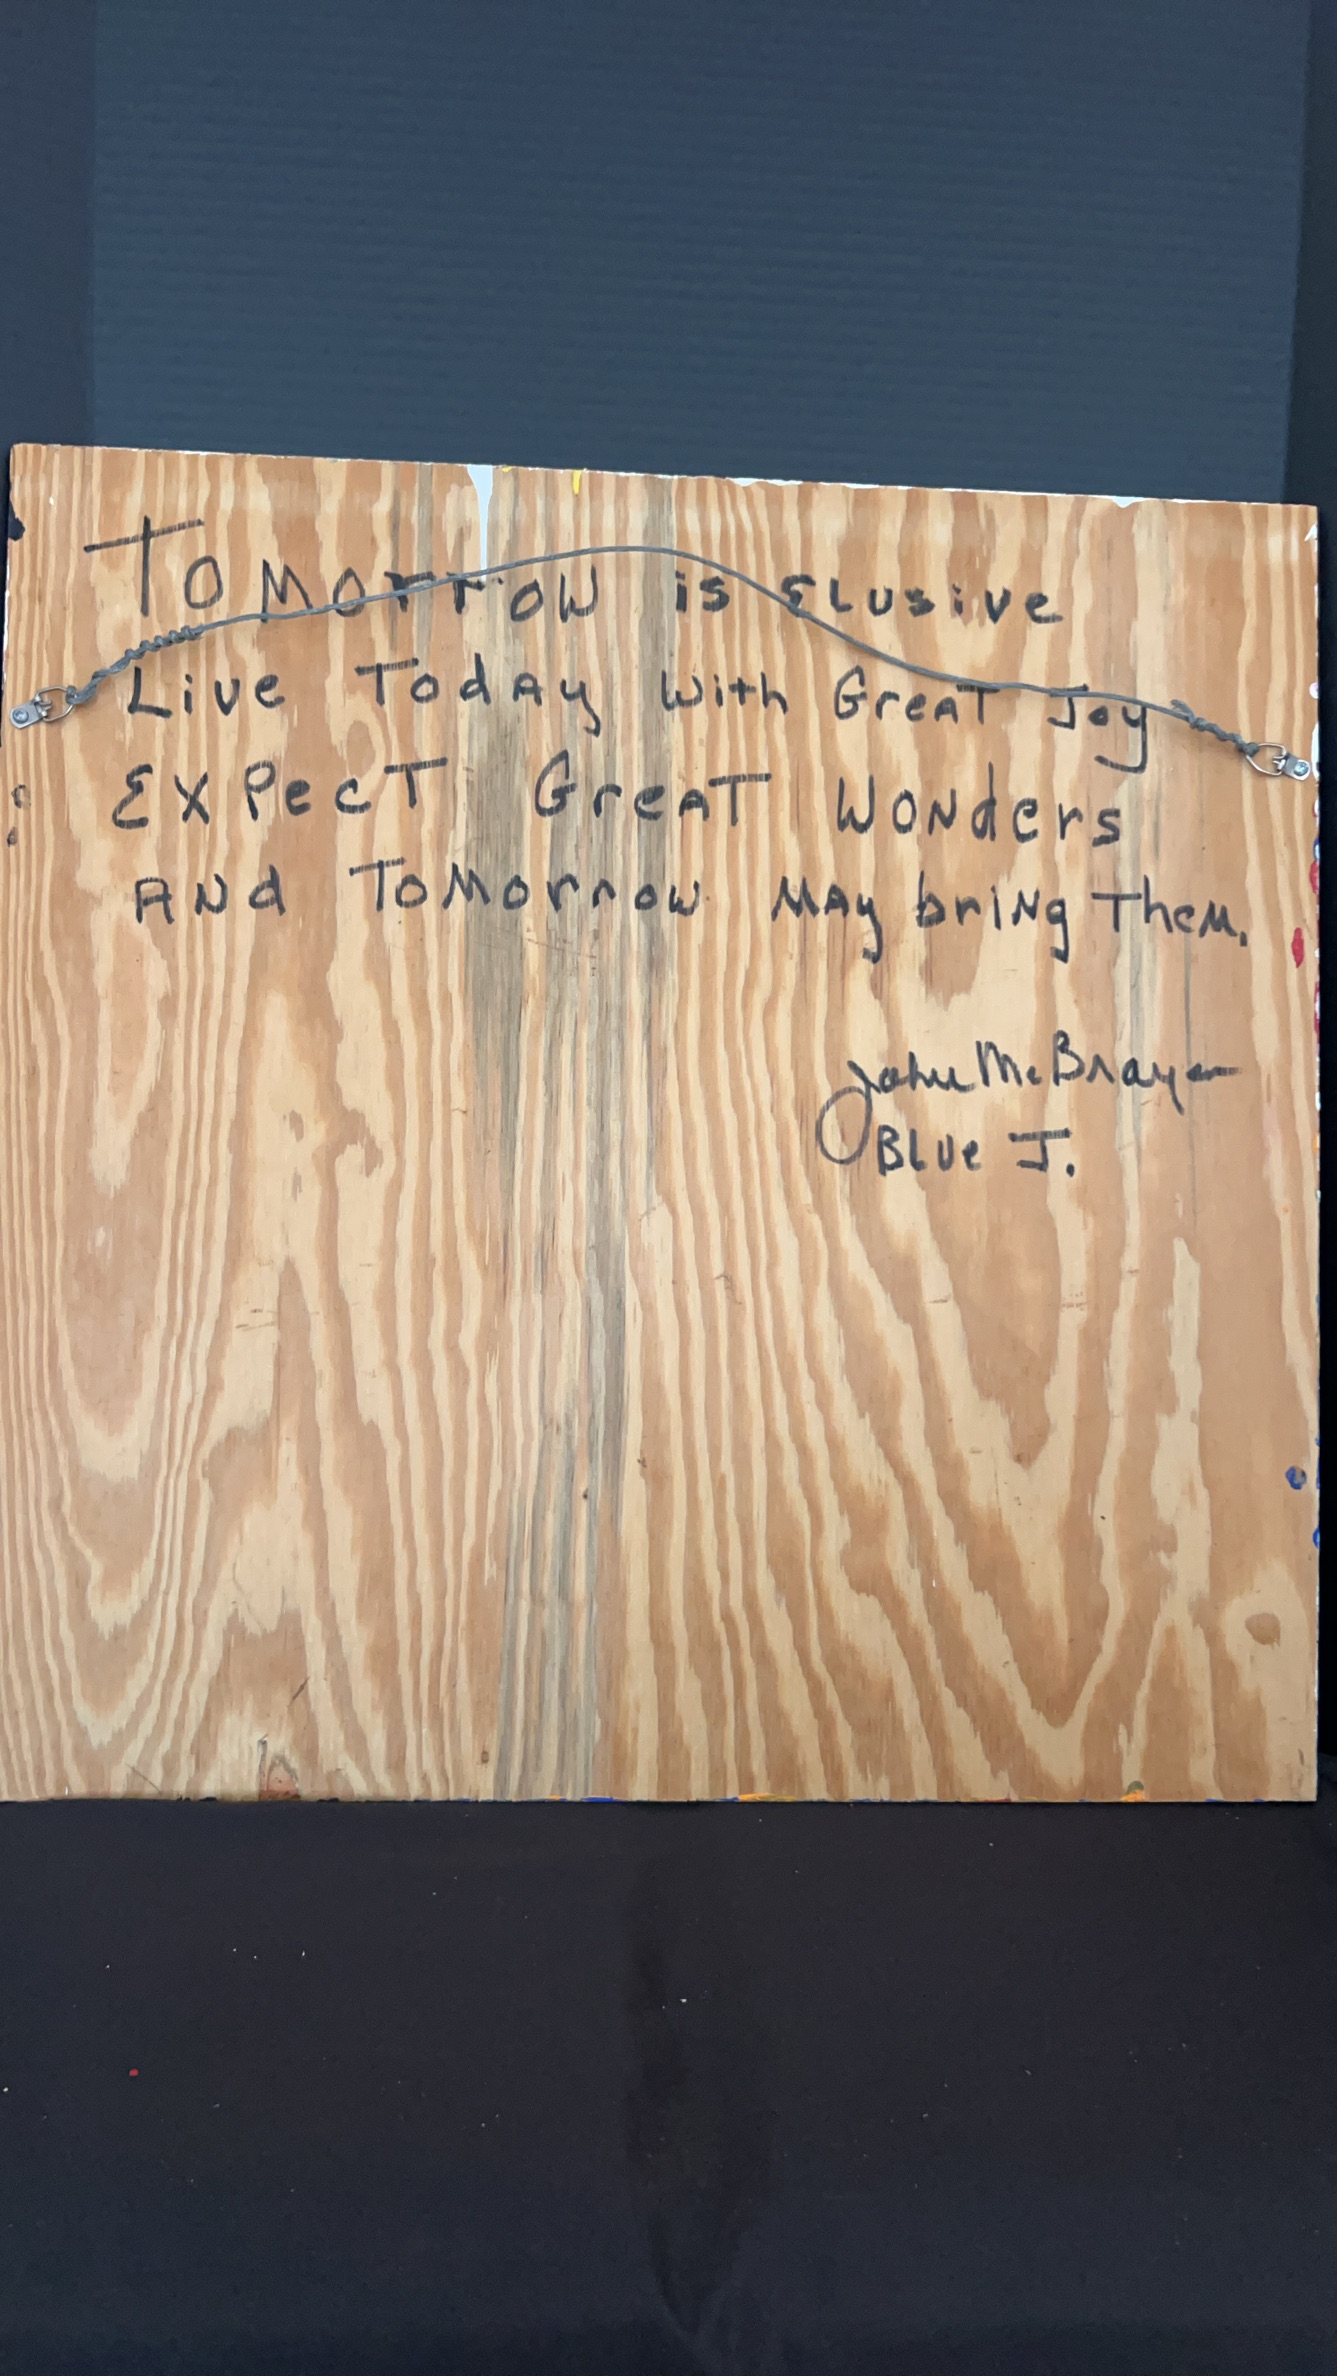 Tomorrow is Elusive
Live Today with Great Joy
Expect Great Wonders
And Tomorrow May bring Them.
John McBrayer
Blue J.